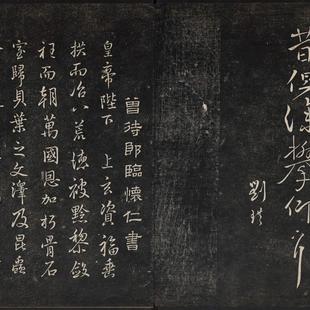 昔
劉珙
曾侍郎臨懷仁書
皇帝陛下 上玄資福垂
拱而治八荒德被黔黎斂
衽而朝萬國恩加朽骨石
室歸貝葉之文澤及昆蟲